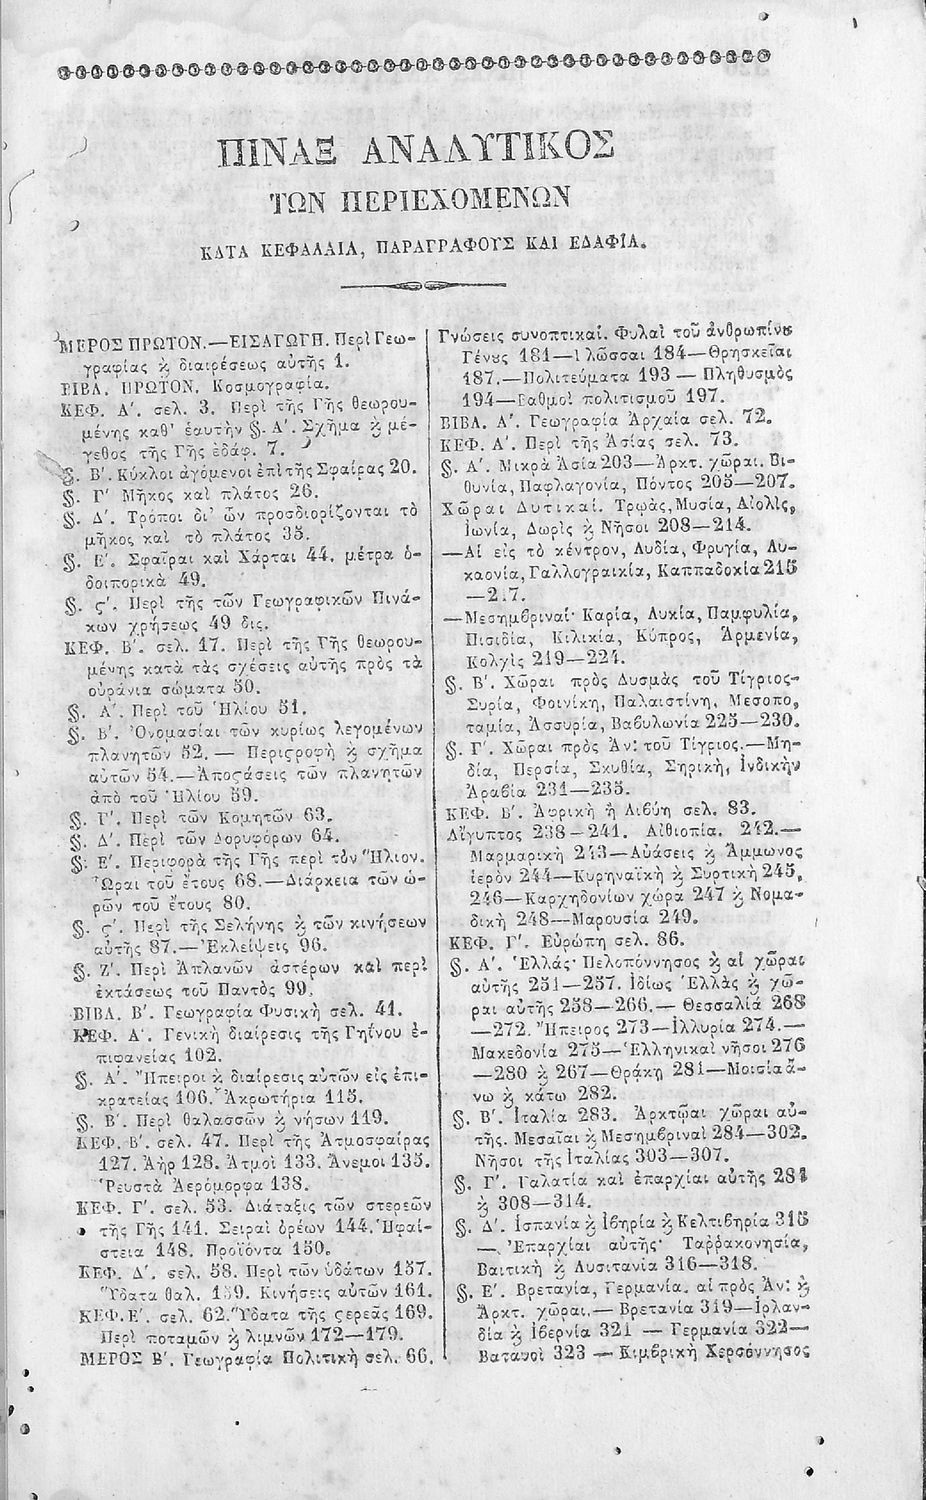 ΠΙΝΑΞ ΑΝΑΛΥΤΙΚΟΣ
ΤΩΝ ΠΕΡΙΕΧΟΜΕΝΩΝ
ΚΑΤΑ ΚΕΦΑΛΑΙΑ, ΠΑΡΑΓΡΑΦΟΥΣ ΚΑΙ ΕΔΑΦΙΑ.
ΜΕΡΟΣ ΠΡΩΤΟΝ.—ΕΙΣΑΓΩΓΗ. Περὶ Γεω-
γραφίας ϗ διαιρέσεως αὐτῆς 1.
ΒΙΒΛ. ΠΡΩΤΟΝ. Κοσμογραφία.
ΚΕΦ. Α΄. σελ. 3. Περὶ τῆς Γῆς θεωρου-
μένης καθ' ἑαυτὴν §. Α΄. Σχῆμα ϗ μέ-
γεθος τῆς Γῆς ἐδάφ. 7.
§. Β΄. Κύκλοι ἀγόμενοι ἐπὶ τῆς Σφαίρας 20.
§. Γ΄ Μῆκος καὶ πλάτος 26.
§. Δ΄. Τρόποι δι' ὧν προσδιορίζονται τὸ
μῆκος καὶ τὸ πλάτος 35.
§. Ε΄. Σφαῖραι καὶ Χάρται 44. μέτρα ὁ-
δοιπορικὰ 49.
§. ς΄. Περὶ τῆς τῶν Γεωγραφικῶν Πινά-
κων χρήσεως 49 δις.
ΚΕΦ. Β΄. σελ. 17. Περὶ τῆς Γῆς θεωρου-
μένης κατὰ τὰς σχέσεις αὐτῆς πρὸς τὰ
οὐράνια σώματα 50.
§. Α΄. Περὶ τοῦ Ἡλίου 51.
§. Β΄. Ὀνομασίαι τῶν κυρίως λεγομένων
πλανητῶν 52. — Περιϛροφὴ ϗ σχῆμα
αὐτῶν 54.—Ἀποϛάσεις τῶν πλανητῶν
ἀπὸ τοῦ Ἡλίου 59.
§. Γ΄. Περὶ τῶν Κομητῶν 63.
§. Δ΄. Περὶ τῶν Δορυφόρων 64.
§. Ε΄. Περιφορὰ τῆς Γῆς περὶ τὸν Ἥλιον.
Ὧραι τοῦ ἔτους 68.—Διάρκεια τῶν ὡ-
ρῶν τοῦ ἔτους 80.
§. ς΄. Περὶ τῆς Σελήνης ϗ τῶν κινήσεων
αὐτῆς 87.—Ἐκλείψεις 96.
§. Ζ΄. Περὶ Ἀπλανῶν ἀστέρων καὶ περὶ
ἐκτάσεως τοῦ Παντὸς 99.
ΒΙΒΛ. Β΄. Γεωγραφία Φυσικὴ σελ. 41.
ΚΕΦ. Α΄. Γενικὴ διαίρεσις τῆς Γηΐνου ἐ-
πιφανείας 102.
§. Α΄. Ἤπειροι ϗ διαίρεσις αὐτῶν εἰς ἐπι-
κρατείας 106. Ἀκρωτήρια 115.
§. Β΄. Περὶ θαλασσῶν ϗ νήσων 119.
ΚΕΦ. Β΄. σελ. 47. Περὶ τῆς Ἀτμοσφαίρας
127. Ἀὴρ 128. Ἀτμοὶ 133. Ἄνεμοι 135.
Ῥευστὰ Ἀερόμορφα 138.
ΚΕΦ. Γ΄. σελ. 53. Διάταξις τῶν στερεῶν
τῆς Γῆς 141. Σειραὶ ὀρέων 144. Ἡφαί-
στεια 148. Προϊόντα 150.
ΚΕΦ. Δ΄. σελ. 58. Περὶ τῶν ὑδάτων 157.
Ὕδατα θαλ. 159. Κινήσεις αὐτῶν 161.
ΚΕΦ. Ε΄. σελ. 62. Ὕδατα τῆς ϛερεᾶς 169.
Περὶ ποταμῶν ϗ λιμνῶν 172—179.
ΜΕΡΟΣ Β΄. Γεωγραφία Πολιτικὴ σελ. 66.
Γνώσεις συνοπτικαί. Φυλαὶ τοῦ ἀνθρωπίνȣ
Γένȣς 181—Γλῶσσαι 184—Θρησκεῖαι
187.—Πολιτεύματα 193 — Πληθυσμὸς
194—Βαθμοὶ πολιτισμοῦ 197.
ΒΙΒΛ. Α΄ Γεωγραφία Ἀρχαία σελ. 72.
ΚΕΦ. Α΄. Περὶ τῆς Ἀσίας σελ. 73.
§. Α΄. Μικρὰ Ἀσία 203—Ἀρκτ. χῶραι. Βι-
θυνία, Παφλαγονία, Πόντος 205—207.
Χῶραι Δυτικαί. Τρῳὰς, Μυσία, Αἰολὶς,
Ἰωνία, Δωρὶς ϗ Νῆσοι 208—214.
—Αἱ εἰς τὸ κέντρον, Λυδία, Φρυγία, Λυ-
καονία, Γαλλογραικία, Καππαδοκία 215
—217.
—Μεσημβριναί· Καρία, Λυκία, Παμφυλία,
Πισιδία, Κιλικία, Κύπρος, Ἀρμενία,
Κολχὶς 219—224.
§. Β΄. Χῶραι πρὸς Δυσμὰς τοῦ Τίγριος-
Συρία, Φοινίκη, Παλαιστίνη, Μεσοπο,
ταμία, Ἀσσυρία, Βαβυλωνία 225—230.
§. Γ΄. Χῶραι πρὸς Ἀν: τοῦ Τίγριος.—Μη-
δία, Περσία, Σκυθία, Σηρικὴ, Ἰνδικὴν
Ἀραβία 231—235.
ΚΕΦ. Β΄. Ἀφρικὴ ἢ Λιβύη σελ. 83.
Αἴγυπτος 238—241. Αἰθιοπία. 242.—
Μαρμαρικὴ 243—Αὐάσεις ϗ Ἄμμωνος
ἱερὸν 244—Κυρηναϊκὴ ϗ Συρτικὴ 245,
246—Καρχηδονίων χώρα 247 ϗ Νομα-
δικὴ 248—Μαρουσία 249.
ΚΕΦ. Γ΄. Εὐρώπη σελ. 86.
§. Α΄. Ἑλλάς· Πελοπόννησος ϗ αἱ χῶραι
αὐτῆς 251—257. Ἰδίως Ἑλλὰς ϗ χῶ-
ραι αὐτῆς 258—266.— Θεσσαλία 268
—272. Ἤπειρος 273—Ἰλλυρία 274.—
Μακεδονία 275—Ἑλληνικαὶ νῆσοι 276
—280 ϗ 267—Θράκη 281—Μοισία ἄ-
νω ϗ κάτω 282.
§. Β΄. Ἰταλία 283. Ἀρκτῷαι χῶραι αὐ-
τῆς. Μεσαῖαι ϗ Μεσημβριναὶ 284—302.
Νῆσοι τῆς Ἰταλίας 303—307.
§. Γ΄. Γαλατία καὶ ἐπαρχίαι αὐτῆς 284
ϗ 308—314.
§. Δ΄. Ἱσπανία ϗ Ἰβηρία ϗ Κελτιβηρία 315
—. Ἐπαρχίαι αὐτῆς· Ταῤῥακονησία,
Βαιτικὴ ϗ Λυσιτανία 316—318.
§. Ε΄. Βρετανία, Γερμανία. αἱ πρὸς Ἀν: ϗ
Ἀρκτ. χῶραι.— Βρετανία 319—Ἰρλαν-
δία ϗ Ἰβερνία 321 — Γερμανία 322—
Βατανοὶ 323 — Κιμβρικὴ Χερσόννησος